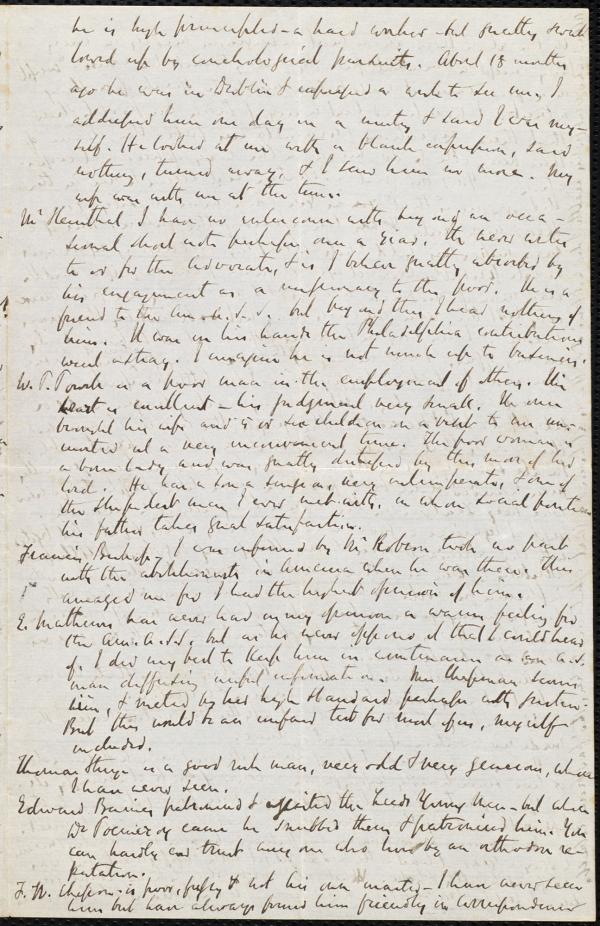 he is high principled - a hard worker - but greatly swal
lowed up by conchological pursuits. About 18 months
ago he was in Dublin & expressed a wish to see me. I
addressed him one day in a meeting & said I was my-
self. He looked at me with a blank expression, said
nothing, turned away, & I saw him no more. My
wife was with me at the time.
Mr Steinthal, I have no intercourse with beyond an occa-
sional short note perhaps once a year. He never writes
to or for the Advocate, & is I believe greatly absorbed by
his engagement as a missionary to the poor. He is a
friend to the Am. A. S. S. but beyond this I hear nothing of
him. It was in his hands the Philadelphia contributions
went astray. I imagine he is not much up to business.
W. P. is a poor man in the employment of others. His
heart is excellent - his judgment very small. He once
brought his wife and 5 or six children on a visit to me un-
invited at a very inconvenient time. The poor woman is
a born lady and was greatly distressed by this move of her
lord. He has a son a surgeon, very intemperate, & one of
the stupidest men I ever met with, in whose social position
his father takes great satisfaction.
Francis Bishop - I was informed by Mr Robson took no part
with the abolitionists in America when he was there. This
amazed me for I had the highest opinion of him.
E. Mathews has never had in my opinion a warm feeling for
the Am. A. S. S. but as he never opposed it that I could hear
of, I did my best to keep him in countenance as an a. s.
man diffusing useful information. Mrs Chapman scorns
him, & tested by her high standard perhaps with justice.
But this would be an unfair test for most of us, myself
included.
Thomas Sturge is a good rich man, very odd & very generous, whom
I have never seen.
Edward Baines patronised & the Leeds Young Men - but when
Dr Pomeroy came he snubbed them & patronised him. You
can hardly trust any one who lives by an orthodox re-
putation.
F. W. Chesson - is poor, & not his own master - I have never seen
him but have always found him friendly in correspondence